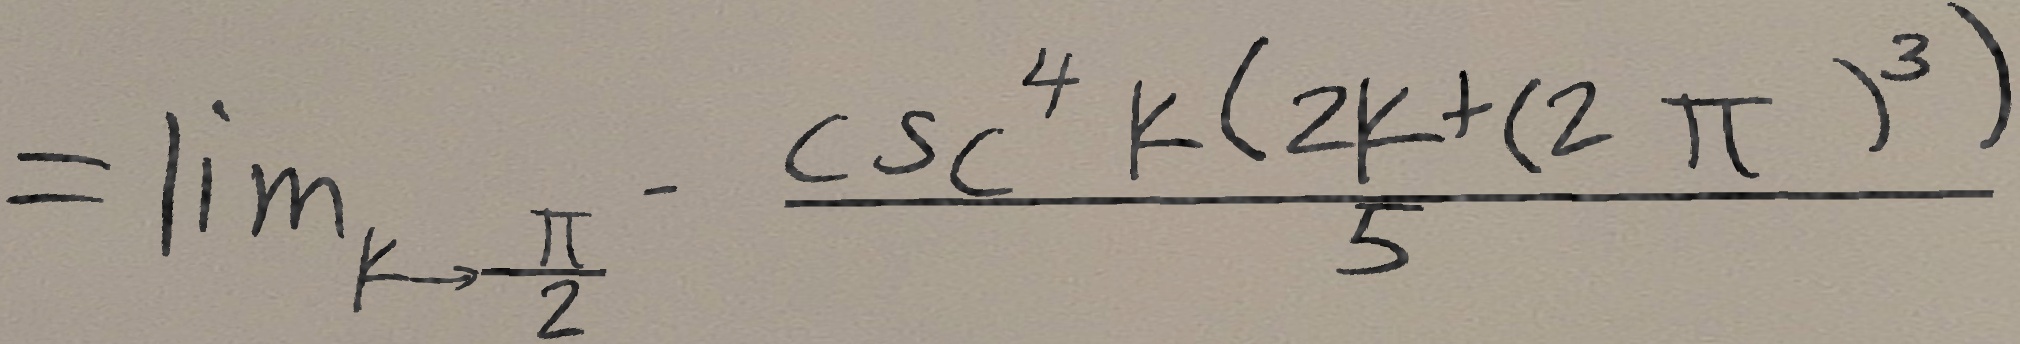 $= \lim_{k \to \frac{\pi}{2}^{-}} \frac{\csc^{4} k (2k + (2\pi)^{3})}{5}$